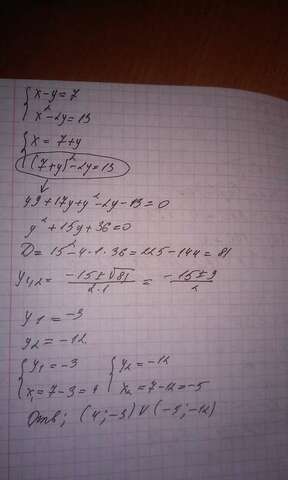 { x-y=7
{ x²-2y=13
{ x=7+y
{ (7+y)²-2y=13
49+17y+y²-2y-13=0
y²+15y+36=0
D=15²-4·1·36=225-144=81
y₁,₂= (-15±√81)/(2·1) = (-15±9)/2
y₁=-3
y₂=-12
{ y₁=-3 { y₂=-12
{ x₁=7-3=4 { x₂=7-12=-5
Отв; (4;-3) V (-5;-12)